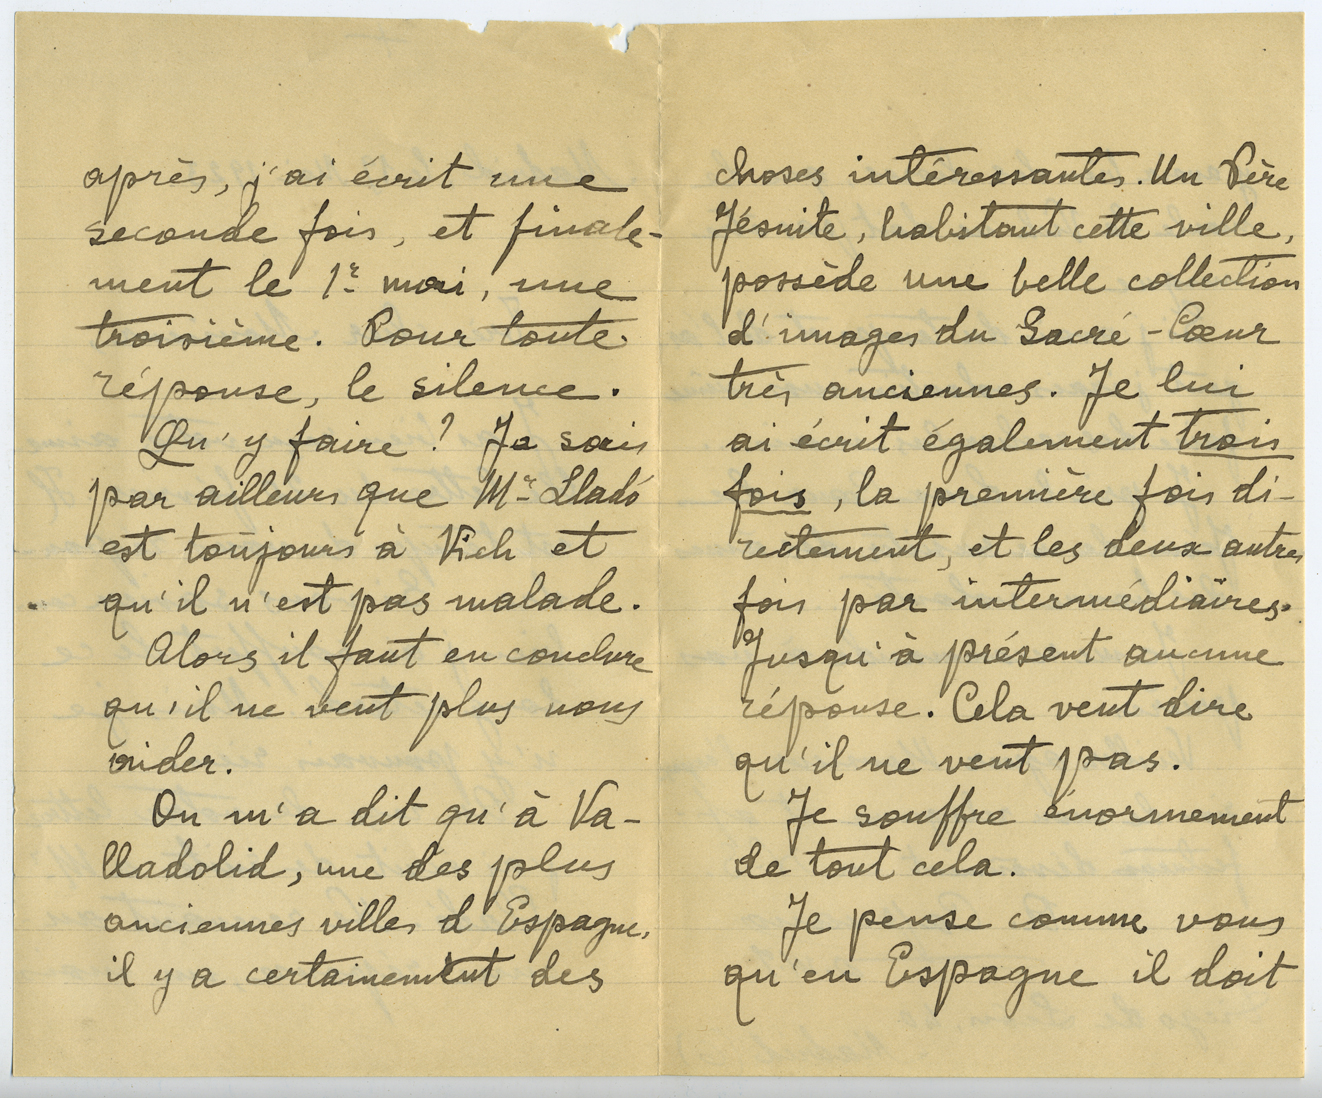 après, j'ai écrit une
seconde fois, et finale-
ment le 1r mai, une
troisième. Pour toute
réponse, le silence.
Qu'y faire? Je sais
par ailleurs que Mr Lladó
est toujours à Vich et
qu'il n'est pas malade.
Alors il faut en conclure
qu'il ne veut plus nous
aider.
On m'a dit qu'à Va-
lladolid, une des plus
anciennes villes d'Espagne,
il y a certainement des
choses intéressantes. Un Père
Jésuite, habitant cette ville,
possède une belle collection
d'images du Sacré-Cœur
très anciennes. Je lui
ai écrit également trois
fois, la première fois di-
rectement, et les deux autres
fois par intermédiaires.
Jusqu'à présent aucune
réponse. Cela veut dire
qu'il ne veut pas.
Je souffre énormement
de tout cela.
Je pense comme vous
qu'en Espagne il doit